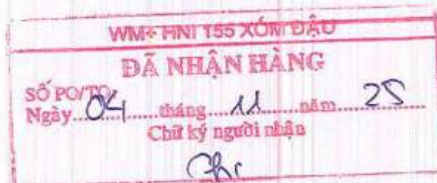 WM+ HNI 155 XÓM ĐẬU
ĐÃ NHẬN HÀNG
SỐ PO/TO
Ngày 04 tháng 11 năm 25
Chữ ký người nhận